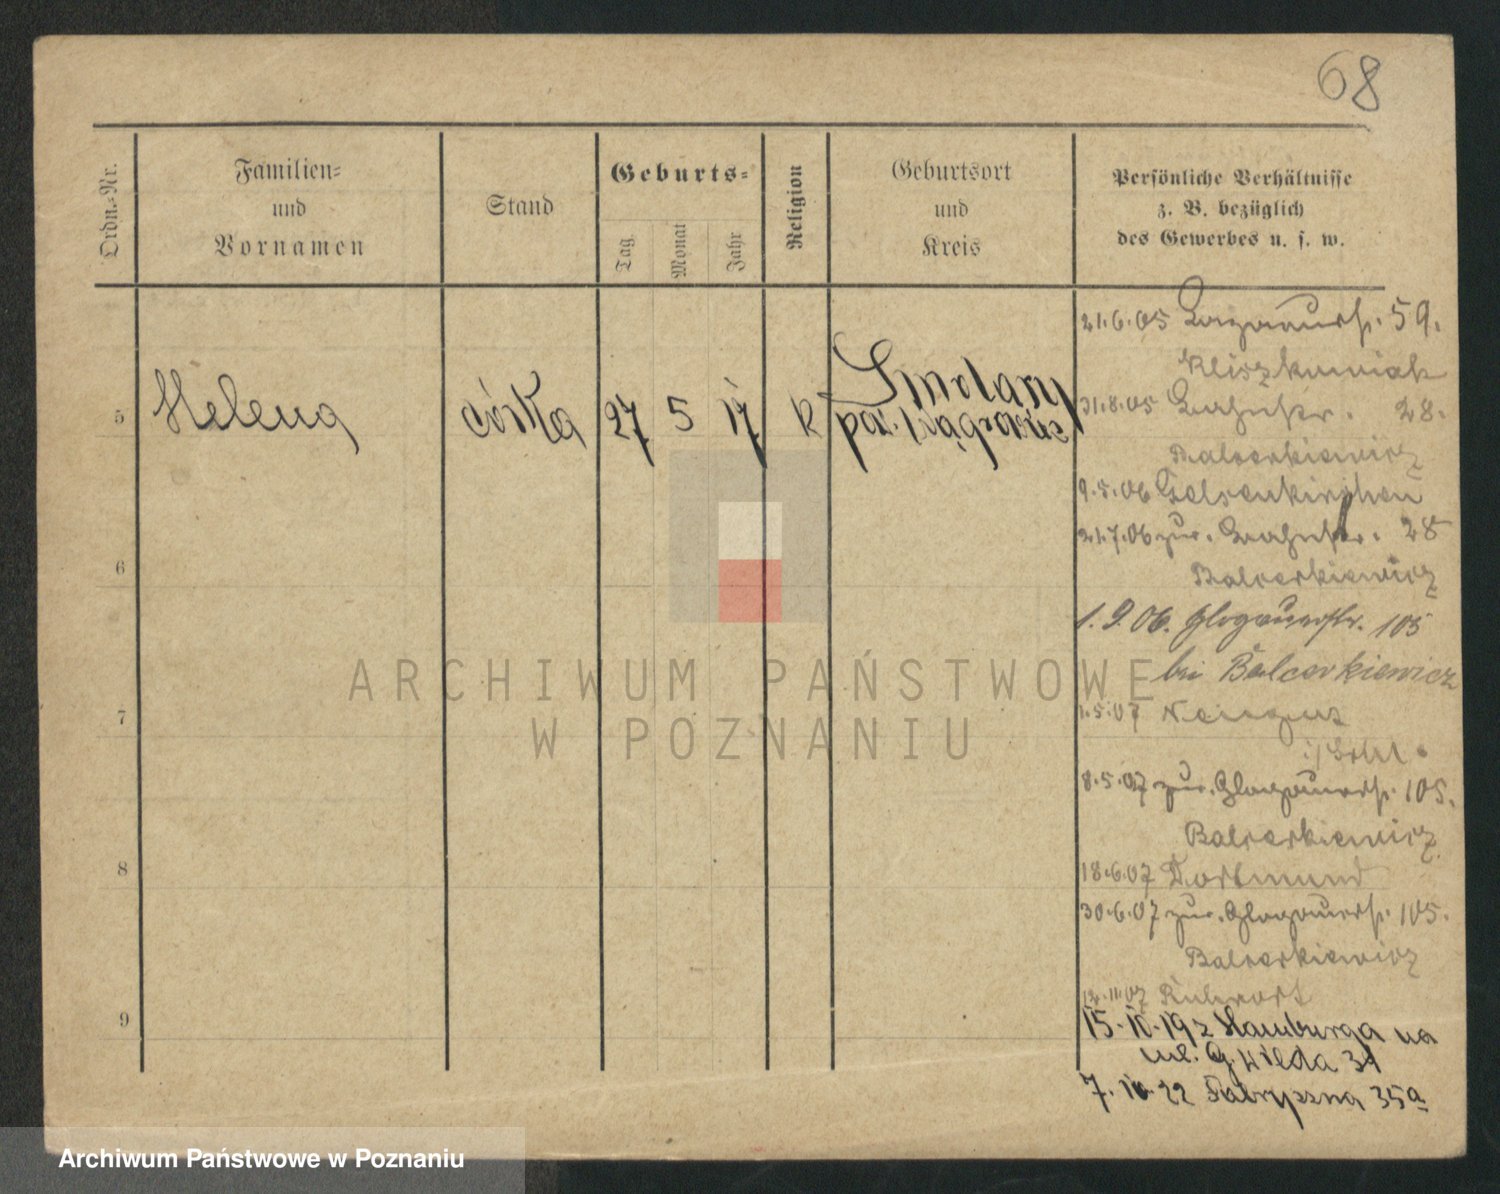 68
Ordn.-Nr.
Familien-
und
Vornamen
Stand
Geburts-
Tag
Monat
Jahr
Religion
Geburtsort
und
Kreis
Persönliche Verhältnisse
z. B. bezüglich
des Gewerbes u. s. w.
5
Helena
córka
27
5
17
K
Smolary
pow. Wągrowiec
6
7
8
9
21.6.05 59.
31.8.05 28.
Balcerkiewicz
9.5.06 Gelsenkirchen
21.7.06 zur. 28
Balcerkiewicz
1.9.06. Glogauerstr. 105
bei Balcerkiewicz
1.5.07
8.5.07 zur. Glogauerstr. 105.
Balcerkiewicz
18.6.07 Dortmund
30.6.07 zur. Glogauerstr. 105.
Balcerkiewicz
12.11.07 Ruhrort
15.10.19 z Hamburga na
ul. G. Wilda 31
7.10.22 Fabryczna 35a
ARCHIWUM PAŃSTWOWE
W POZNANIU
Archiwum Państwowe w Poznaniu